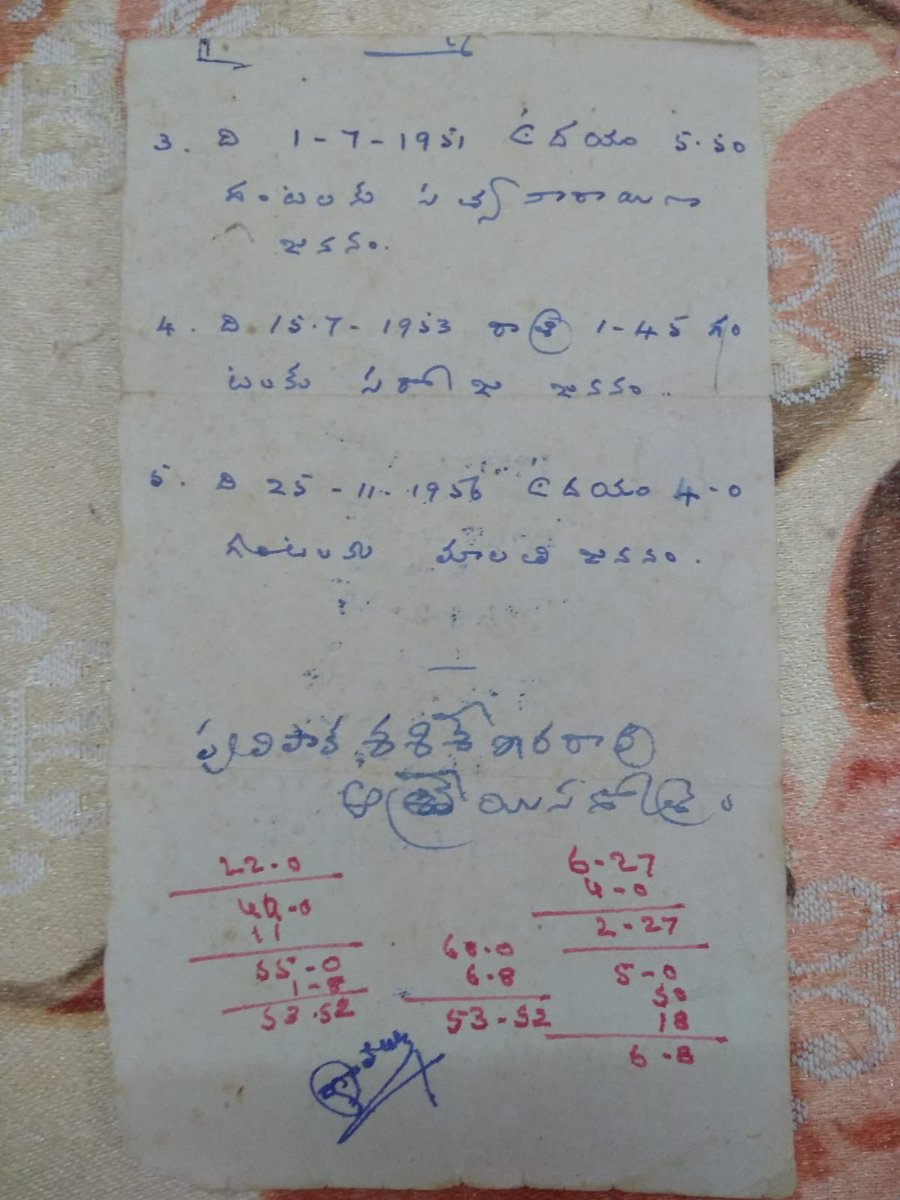 3. ది 1-7-1951 ఉదయం 5.50
గంటలకు సత్యనారాయణ
జననం.
4. ది 15.7-1953 రాత్రి 1-45 గం
టలకు సరోజ జననం..
5. ది 25-11-1956 ఉదయం 4-0
గంటలకు మాలతి జననం.
శశిశేఖరరావు
ఆత్రేయస గోత్రం
22.0
11
55-0
1-8
53.52
60.0
6-8
53-52
6-27
4-0
2-27
5-0
50
18
6-8